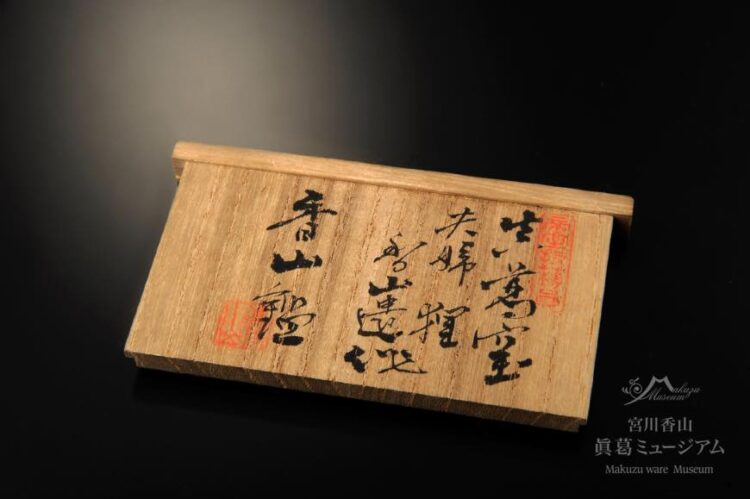 真葛窯
夫婦狸
香山遺作
香山鑑
Makuzu
Museum
宮川香山
眞葛ミュージアム
Makuzu ware Museum